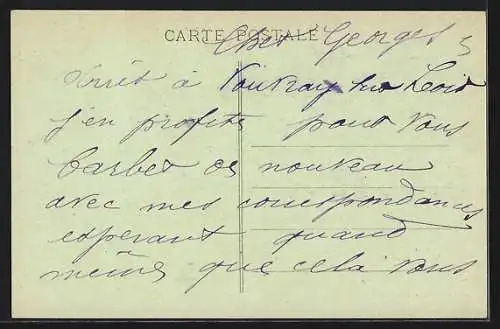 CARTE POSTALE
Cher Georges
Arrêt à Vouvray sur Loir
j'en profite pour vous
barber de nouveau
avec mes correspondances
esperant quand
même que cela vous